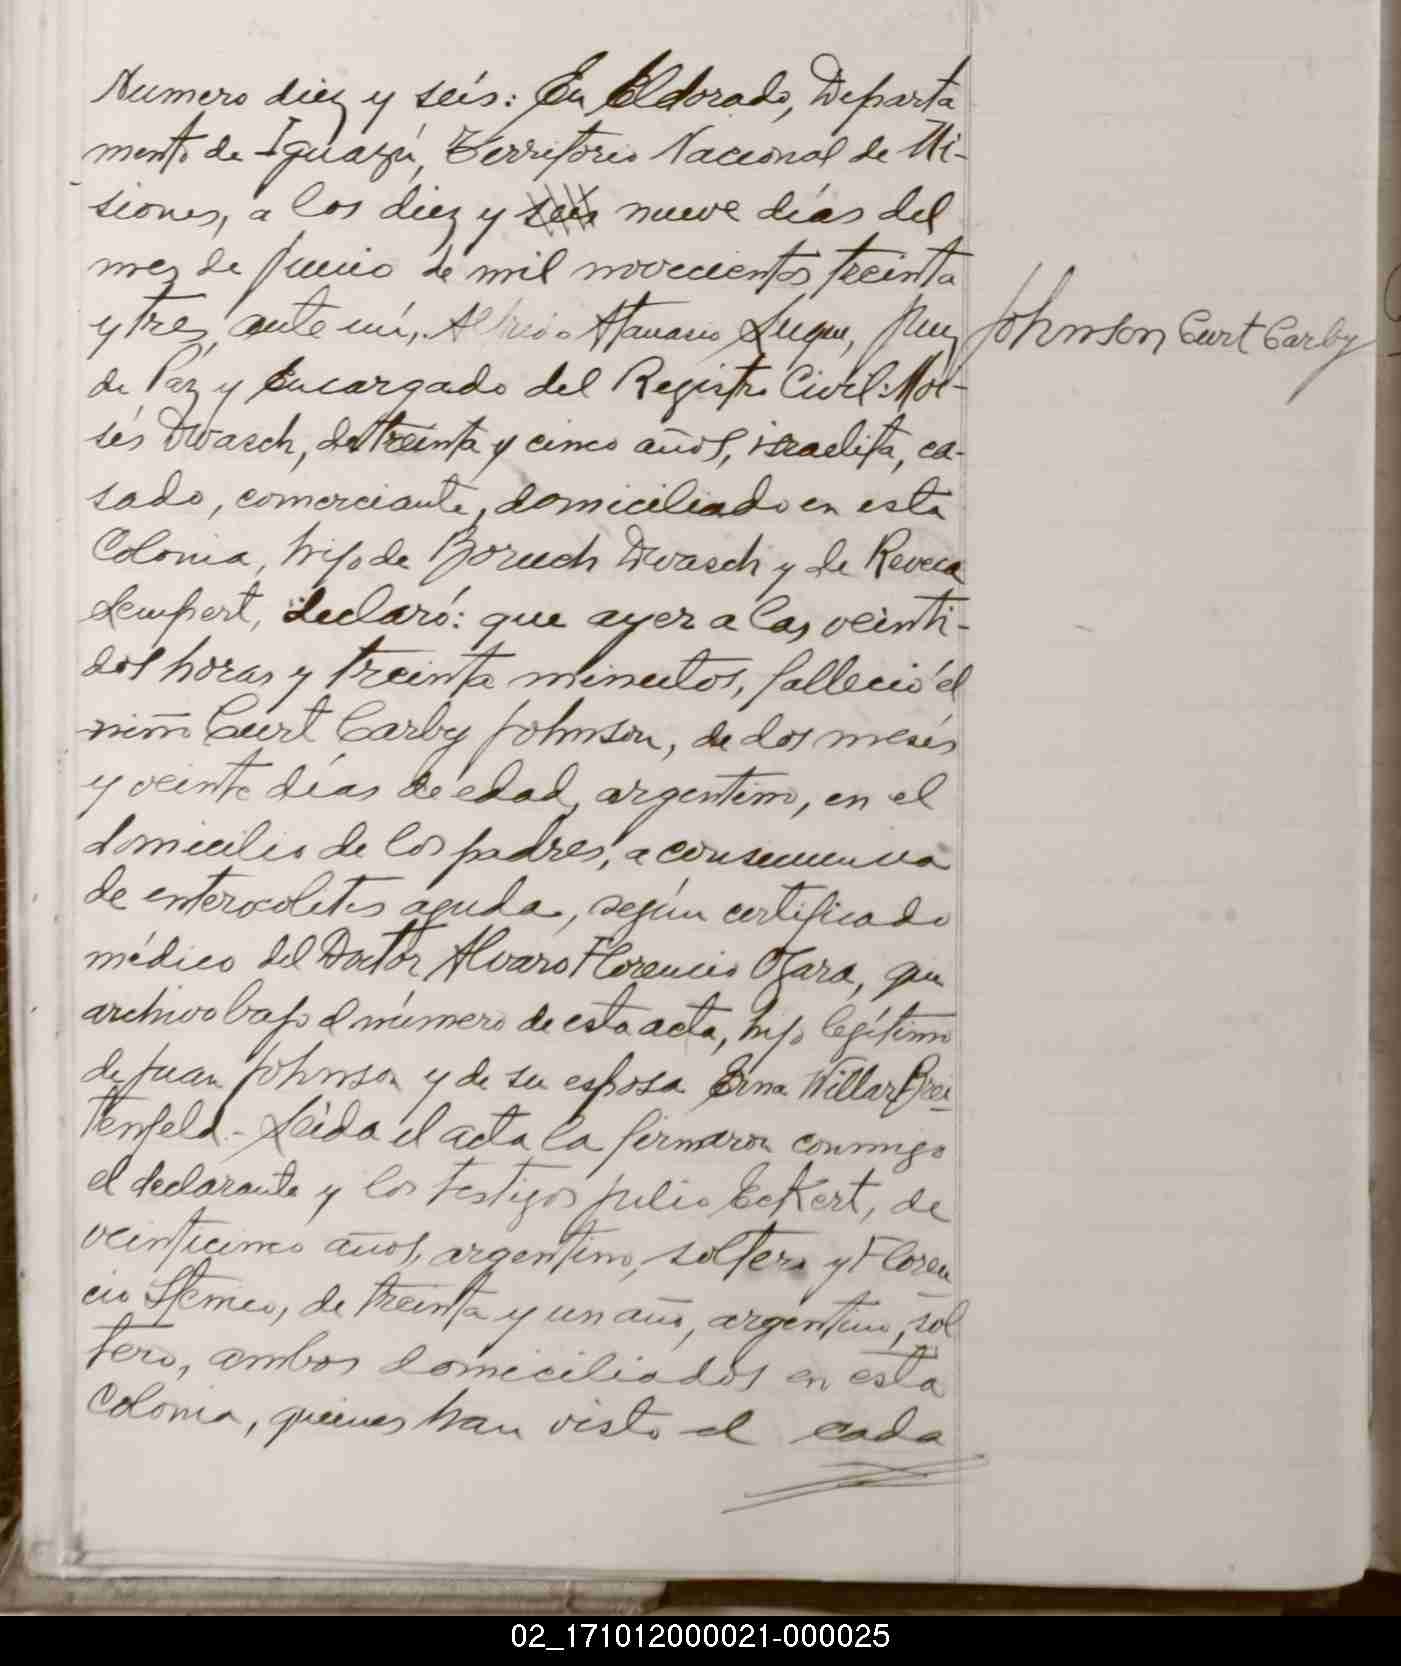 Numero diez y seis: En Eldorado, Departa
mento de Iguazú, Territorio Nacional de Mi-
siones, a los diez y seis nueve días del
mes de Junio de mil novecientos treinta
y tres, ante mí, Alfredo Atanasio Luque, Juez
de Paz y Encargado del Registro Civil: Moi-
sés Dwasch, de treinta y cinco años, israelita, ca-
sado, comerciante, domiciliado en esta
Colonia, hijo de Boruch Dwasch y de Reveca
Lempert, declaró: que ayer a las veinti-
dos horas y treinta minutos, falleció el
niño Curt Carby Johnson, de dos meses
y veinte días de edad, argentino, en el
domicilio de los padres, a consecuencia
de enterocolitis aguda, según certificado
médico del Doctor Alvaro Florencio Ojara, que
archivo bajo el número de esta acta, hijo legítimo
de Juan Johnson y de su esposa Erna Willar Brei-
tenfeld.- Leída el acta la firmaron conmigo
el declarante y los testigos Julio Eckert, de
veinticinco años, argentino, soltero y Floren
cio Stemeo, de treinta y un año, argentino, sol
tero, ambos domiciliados en esta
Colonia, quienes han visto el cada
Johnson Curt Carby
02_171012000021-000025